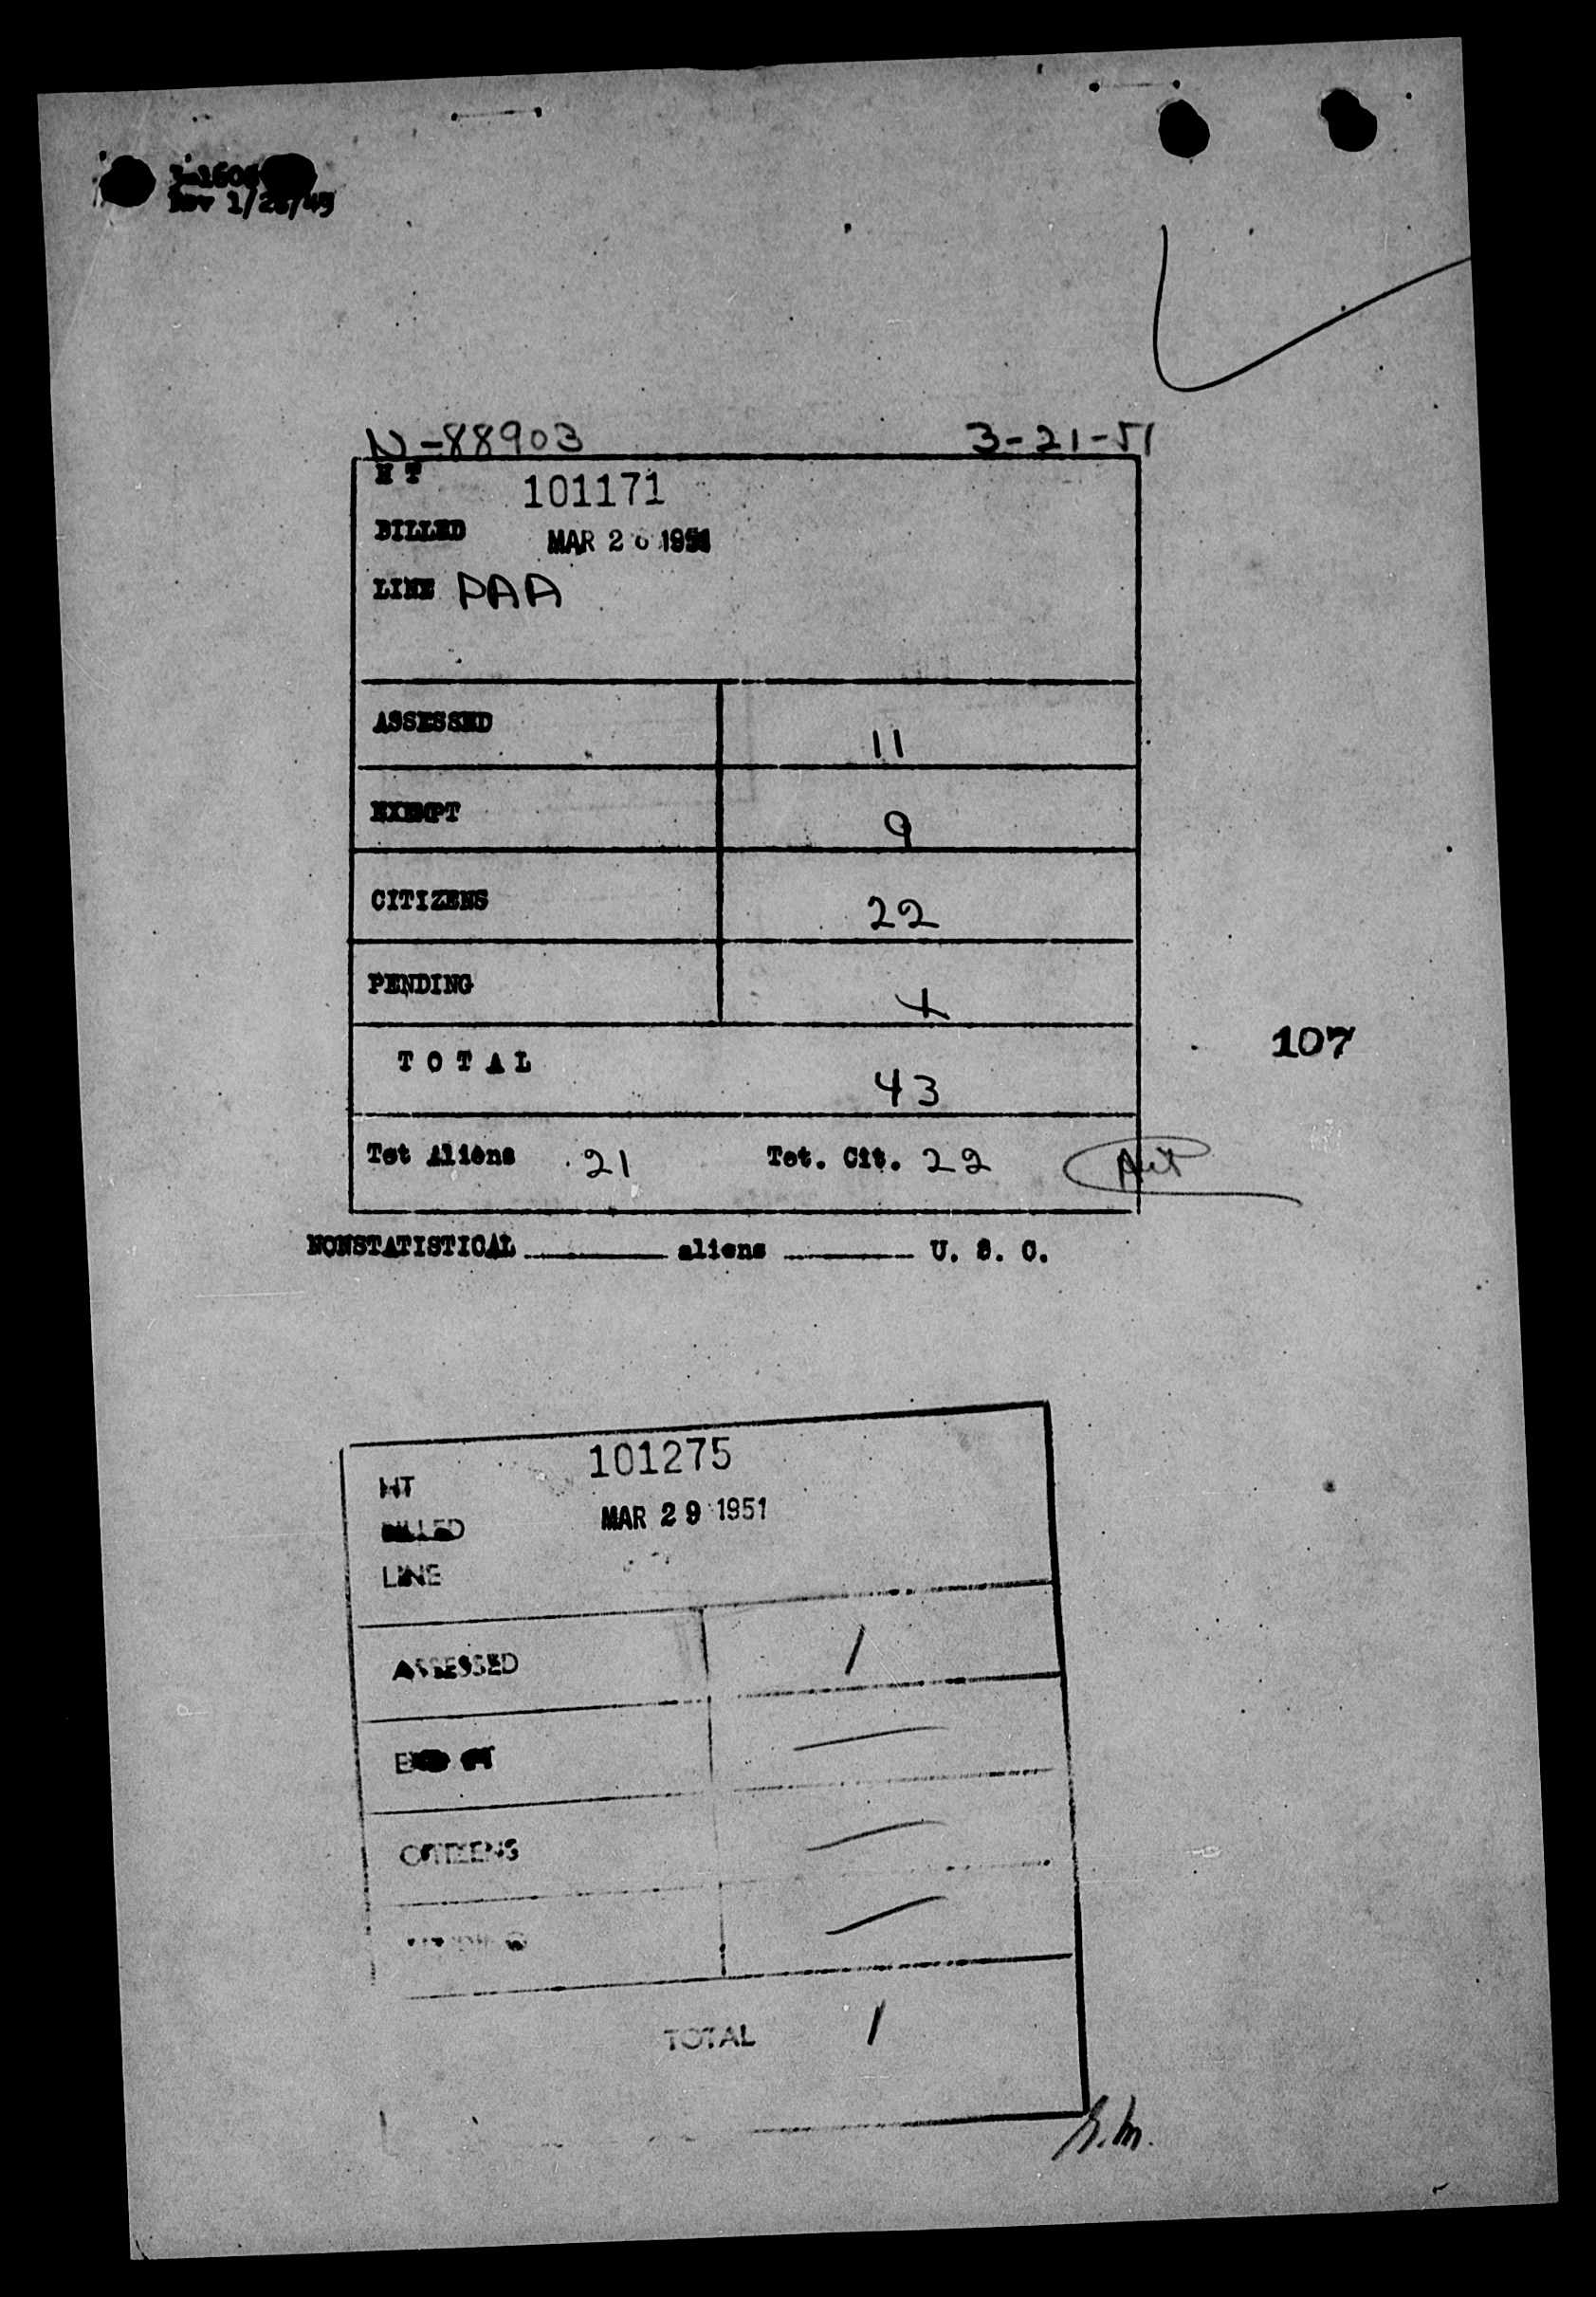 Rev 1/25/45
N-88903 3-21-51
H T 101171
BILLED MAR 26 1951
LINE PAA
ASSESSED 11
EXEMPT 9
CITIZENS 22
PENDING
TOTAL 43
107
Tot Aliens 21 Tot. Cit. 22
NONSTATISTICAL aliens U. S. C.
HT 101275
BILLED MAR 29 1951
LINE
ASSESSED 1
EXEMPT —
CITIZENS —
PENDING —
TOTAL 1